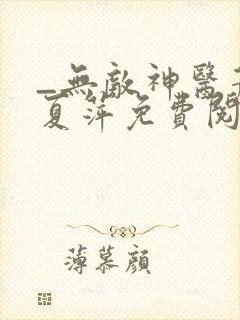 _無敵神醫
夏萍免費閱
薄慕顏